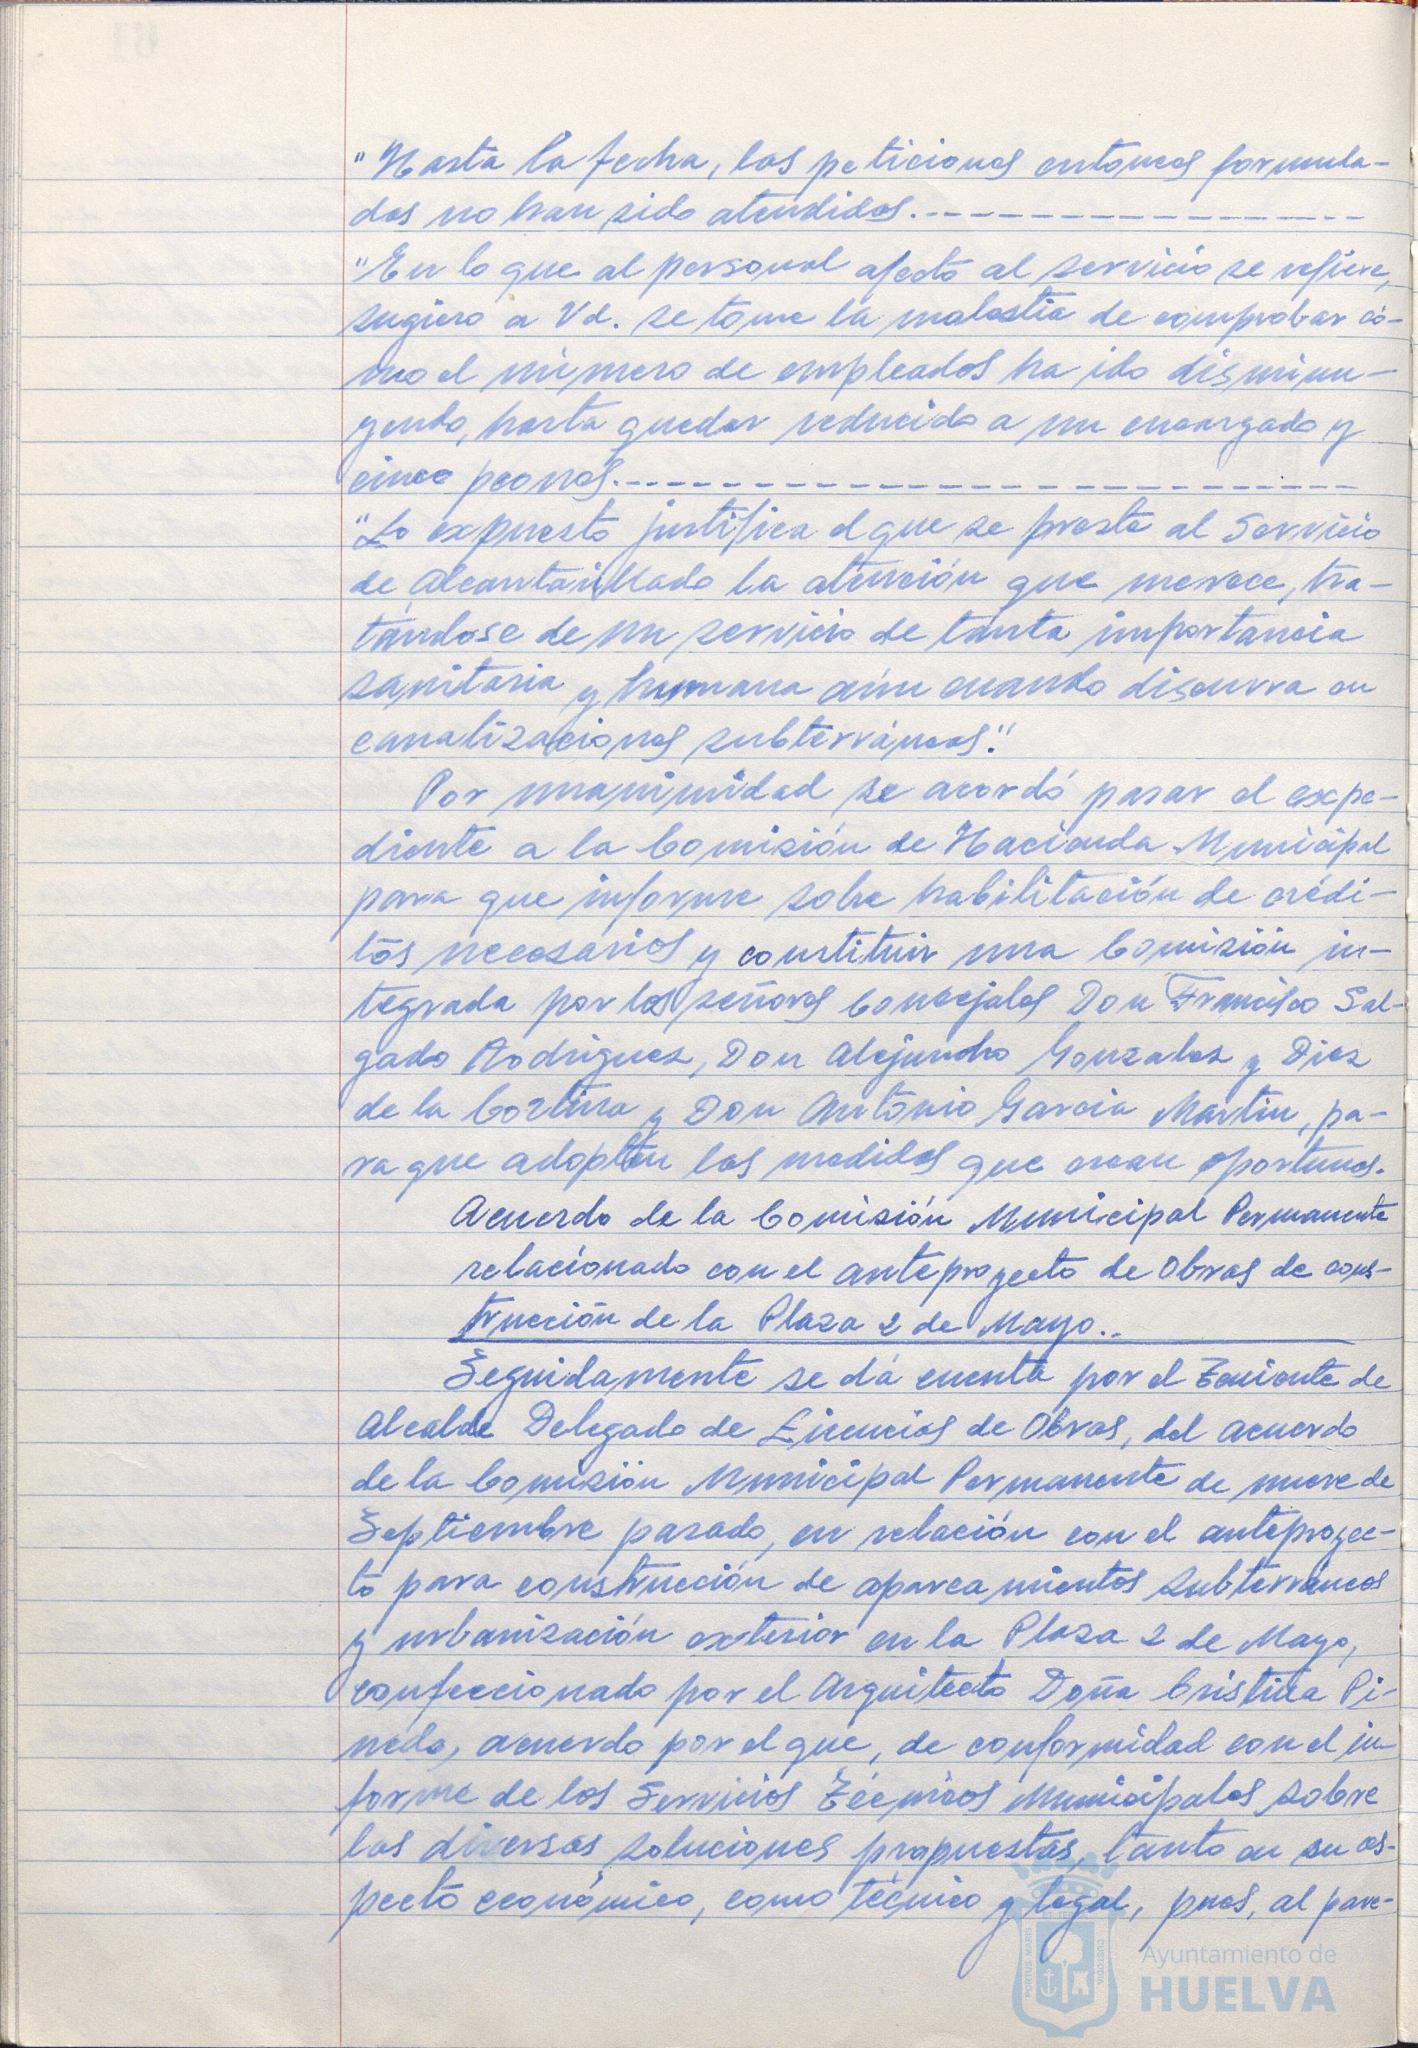 "Hasta la fecha, las peticiones entonces formula-
das no han sido atendidas.-----------------
"En lo que al personal afecto al servicio se refiere,
sugiero a Vd. se tome la molestia de comprobar có-
mo el número de empleados ha ido disminu-
yendo, hasta quedar reducido a un encargado y
cinco peones.-----------------------
"Lo expuesto justifica el que se preste al Servicio
de Alcantarillado la atención que merece, tra-
tándose de un servicio de tanta importancia
sanitaria y humana aún cuando discurra en
canalizaciones subterráneas."
Por unanimidad se acordó pasar el expe-
diente a la Comisión de Hacienda Municipal
para que informe sobre habilitación de crédi-
tos necesarios y constituir una Comisión in-
tegrada por los señores Concejales Don Francisco Sal-
gado Rodriguez, Don Alejandro Gonzalez y Diez
de la Cortina y Don Antonio Garcia Martin, pa-
ra que adopten las medidas que crean oportunas.
Acuerdo de la Comisión Municipal Permanente
relacionado con el anteproyecto de Obras de cons-
trucción de la Plaza 2 de Mayo..
Seguidamente se dá cuenta por el Teniente de
Alcalde Delegado de Licencias de Obras, del acuerdo
de la Comisión Municipal Permanente de nueve de
Septiembre pasado, en relación con el anteproyec-
to para construcción de aparcamientos subterraneos
y urbanización exterior en la Plaza 2 de Mayo,
confeccionado por el Arquitecto Doña Cristina Pi-
neda, acuerdo por el que, de conformidad con el in
forme de los Servicios Técnicos Municipales sobre
las diversas soluciones propuestas, tanto en su as-
pecto económico, como técnico y legal, pues, al pare-
PORTUS MARIS
CUSTODIA
Ayuntamiento de
HUELVA